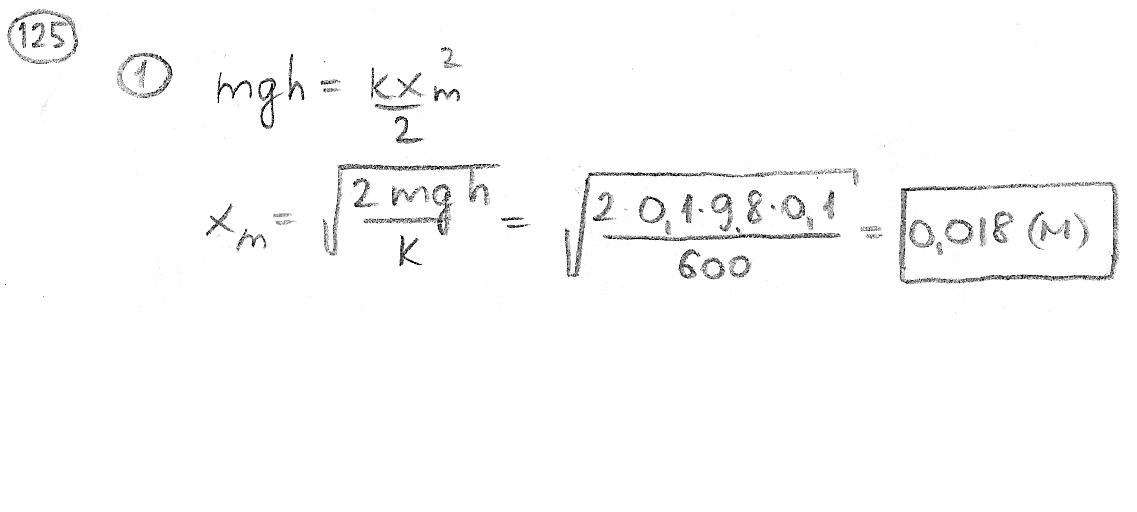 125
1 mgh = kx_m^2/2
x_m = √(2mgh/k) = √(2·0,1·9,8·0,1/600) = 0,018 (м)